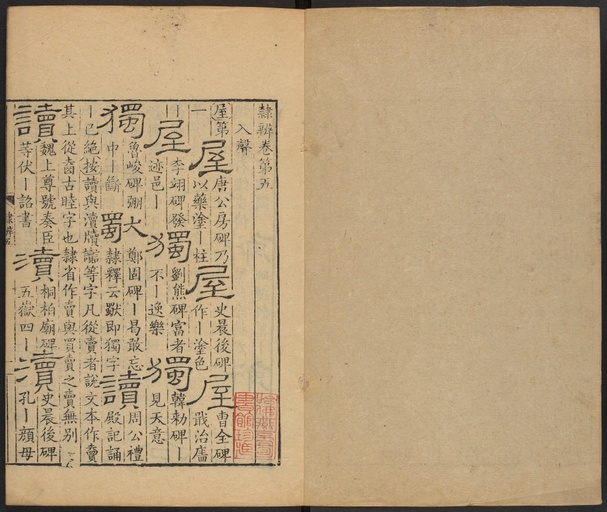 隸辨卷第五
入聲
屋第一 屋 唐公房碑乃以藥塗丨柱 屋 史晨後碑作丨塗色 屋 曹全碑戢治廧丨
屋 李翊碑發迹邑丨 獨 劉熊碑富者不丨逸樂 獨 韓勑碑丨見天意
獨 魯峻碑弸中丨斷 鄭固碑丨曷敢忘隸釋云 即獨字 讀 周公禮殿記誦
丨已絕按讀與瀆牘 等字凡從賣者說文本作
其上從 古睦字也隸省作賣與買賣之賣無別
讀 魏上尊號奏臣等伏丨詔書 瀆 桐柏廟碑五嶽四丨 瀆 史晨後碑孔丨顏母